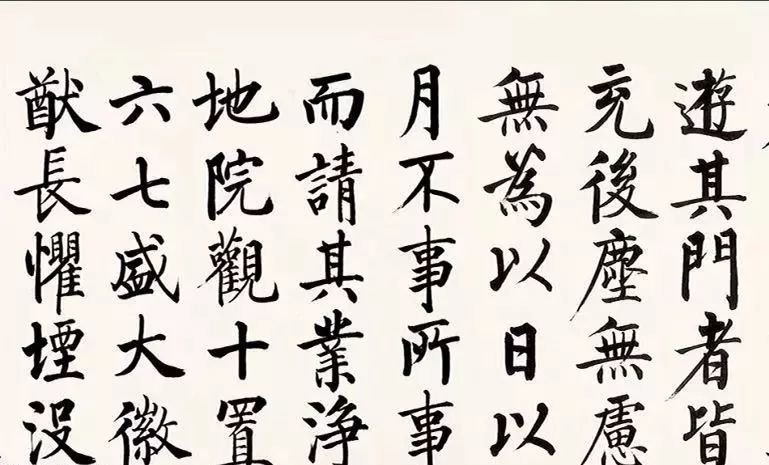 遊其門者皆
充後塵無慮
無為以日以
月不事所事
而請其業浄
地院觀十置
六七盛大徽
猷長懼堙没